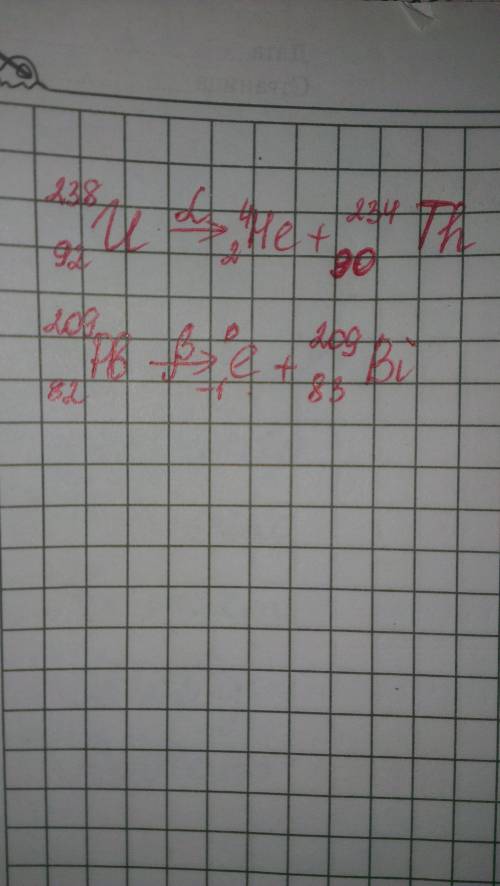 Дата
Страница
²³⁸₉₂U α→ ⁴₂He + ²³⁴₉₀Th
²⁰⁹₈₂Pb β→ ⁰₋₁e + ²⁰⁹₈₃Bi